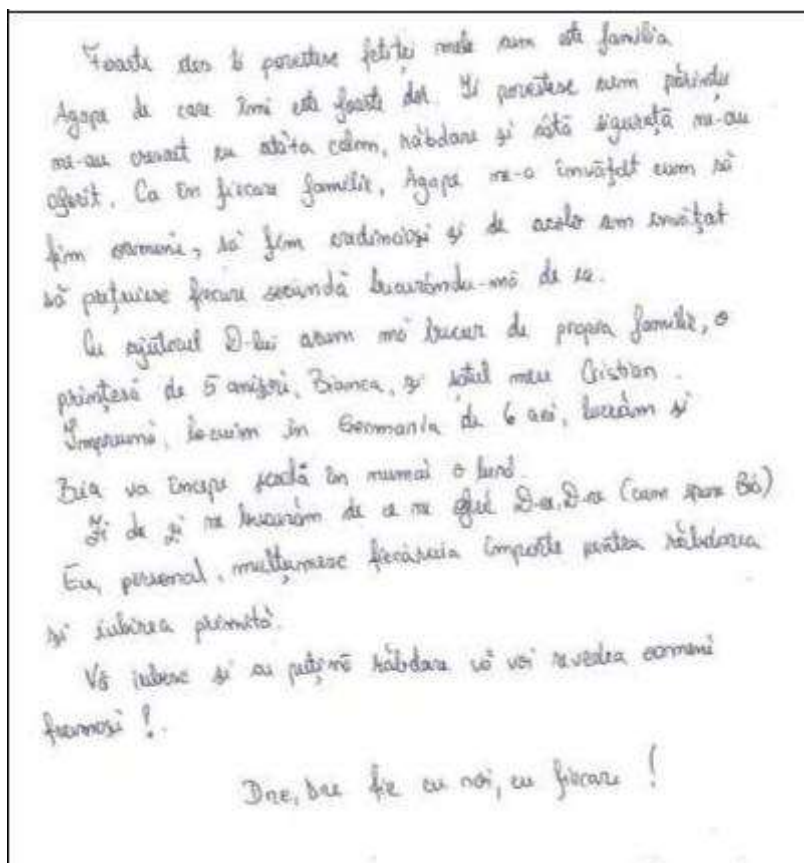 Foarte des îi povestesc fetiței mele cum este familia
Agape de care îmi este foarte dor. Îi povestesc cum părinții
ne-au crescut cu atâta calm, răbdare și câtă siguranță ne-au
oferit. Ca în fiecare familie, Agape ne-a învățat cum să
fim oameni, să fim credincioși și de acolo am învățat
să prețuiesc fiecare secundă bucurându-mă de ea.
Cu ajutorul D-lui acum mă bucur de propria familie, o
prințesă de 5 anișori, Bianca, și soțul meu Cristian.
Împreună, locuim în Germania de 6 ani, lucrăm și
Bia va începe școala în numai o lună.
Zi de zi ne bucurăm de ce ne D-ne, D-ne (cum spune Bia)
Eu, personal, mulțumesc fiecăruia în parte pentru răbdarea
și iubirea primită.
Vă iubesc și cu puțină răbdare vă voi revedea oameni
frumoși!.
Dne, Dne fie cu noi, cu fiecare!